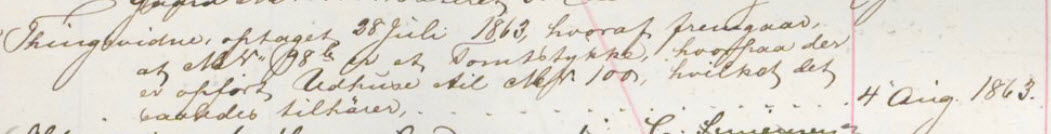 Thingsvidne, optaget 28 Juli 1863, hvoraf fremgaar,
at M N° 98 b er et Tomtstykke, hvorpaa der
er opført Udhuse til M N 100, hvilket det
saaledes tilhører, . . . . . . . . . 4 Aug. 1863.